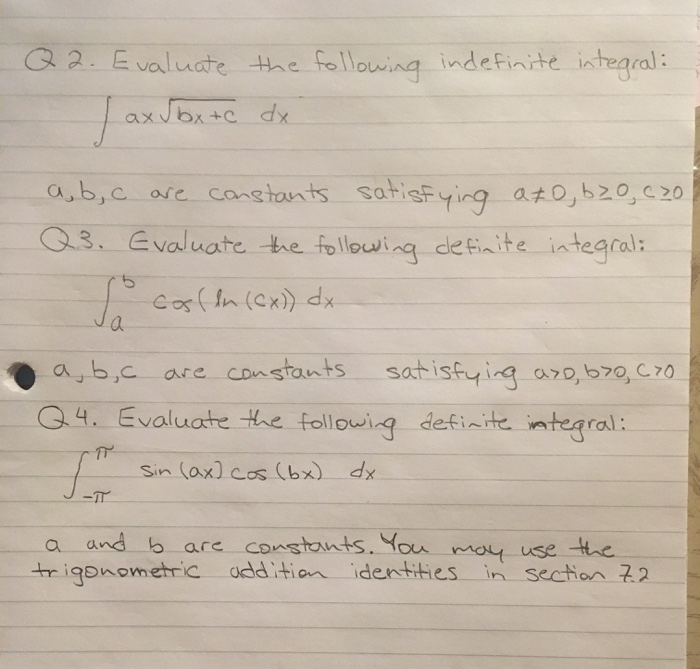 Q2. Evaluate the following indefinite integral:
∫ ax√(bx+c) dx
a,b,c are constants satisfying a≠0, b≥0, c≥0
Q3. Evaluate the following definite integral:
∫_a^b cos(ln(cx)) dx
a,b,c are constants satisfying a>0, b>0, c>0
Q4. Evaluate the following definite integral:
∫_-π^π sin(ax) cos(bx) dx
a and b are constants. You may use the
trigonometric addition identities in section 7.2